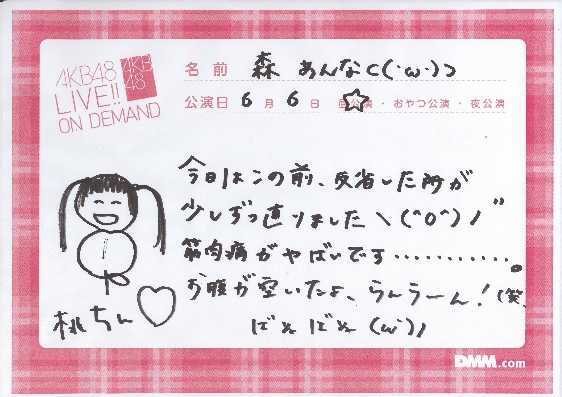 AKB48
LIVE!!
ON DEMAND
AKB
48
名前 森 あんな⊂(・ω・)⊃
公演日 6月6日 ☆公演・おやつ公演・夜公演
今日はこの前、反省した所が
少しずつ直りました\(^o^)/"
筋肉痛がやばいです............。
お腹が空いたよ、らんらーん!(笑、
ばぁばぁ(ω・)ノ
桃ちん
DMM.com